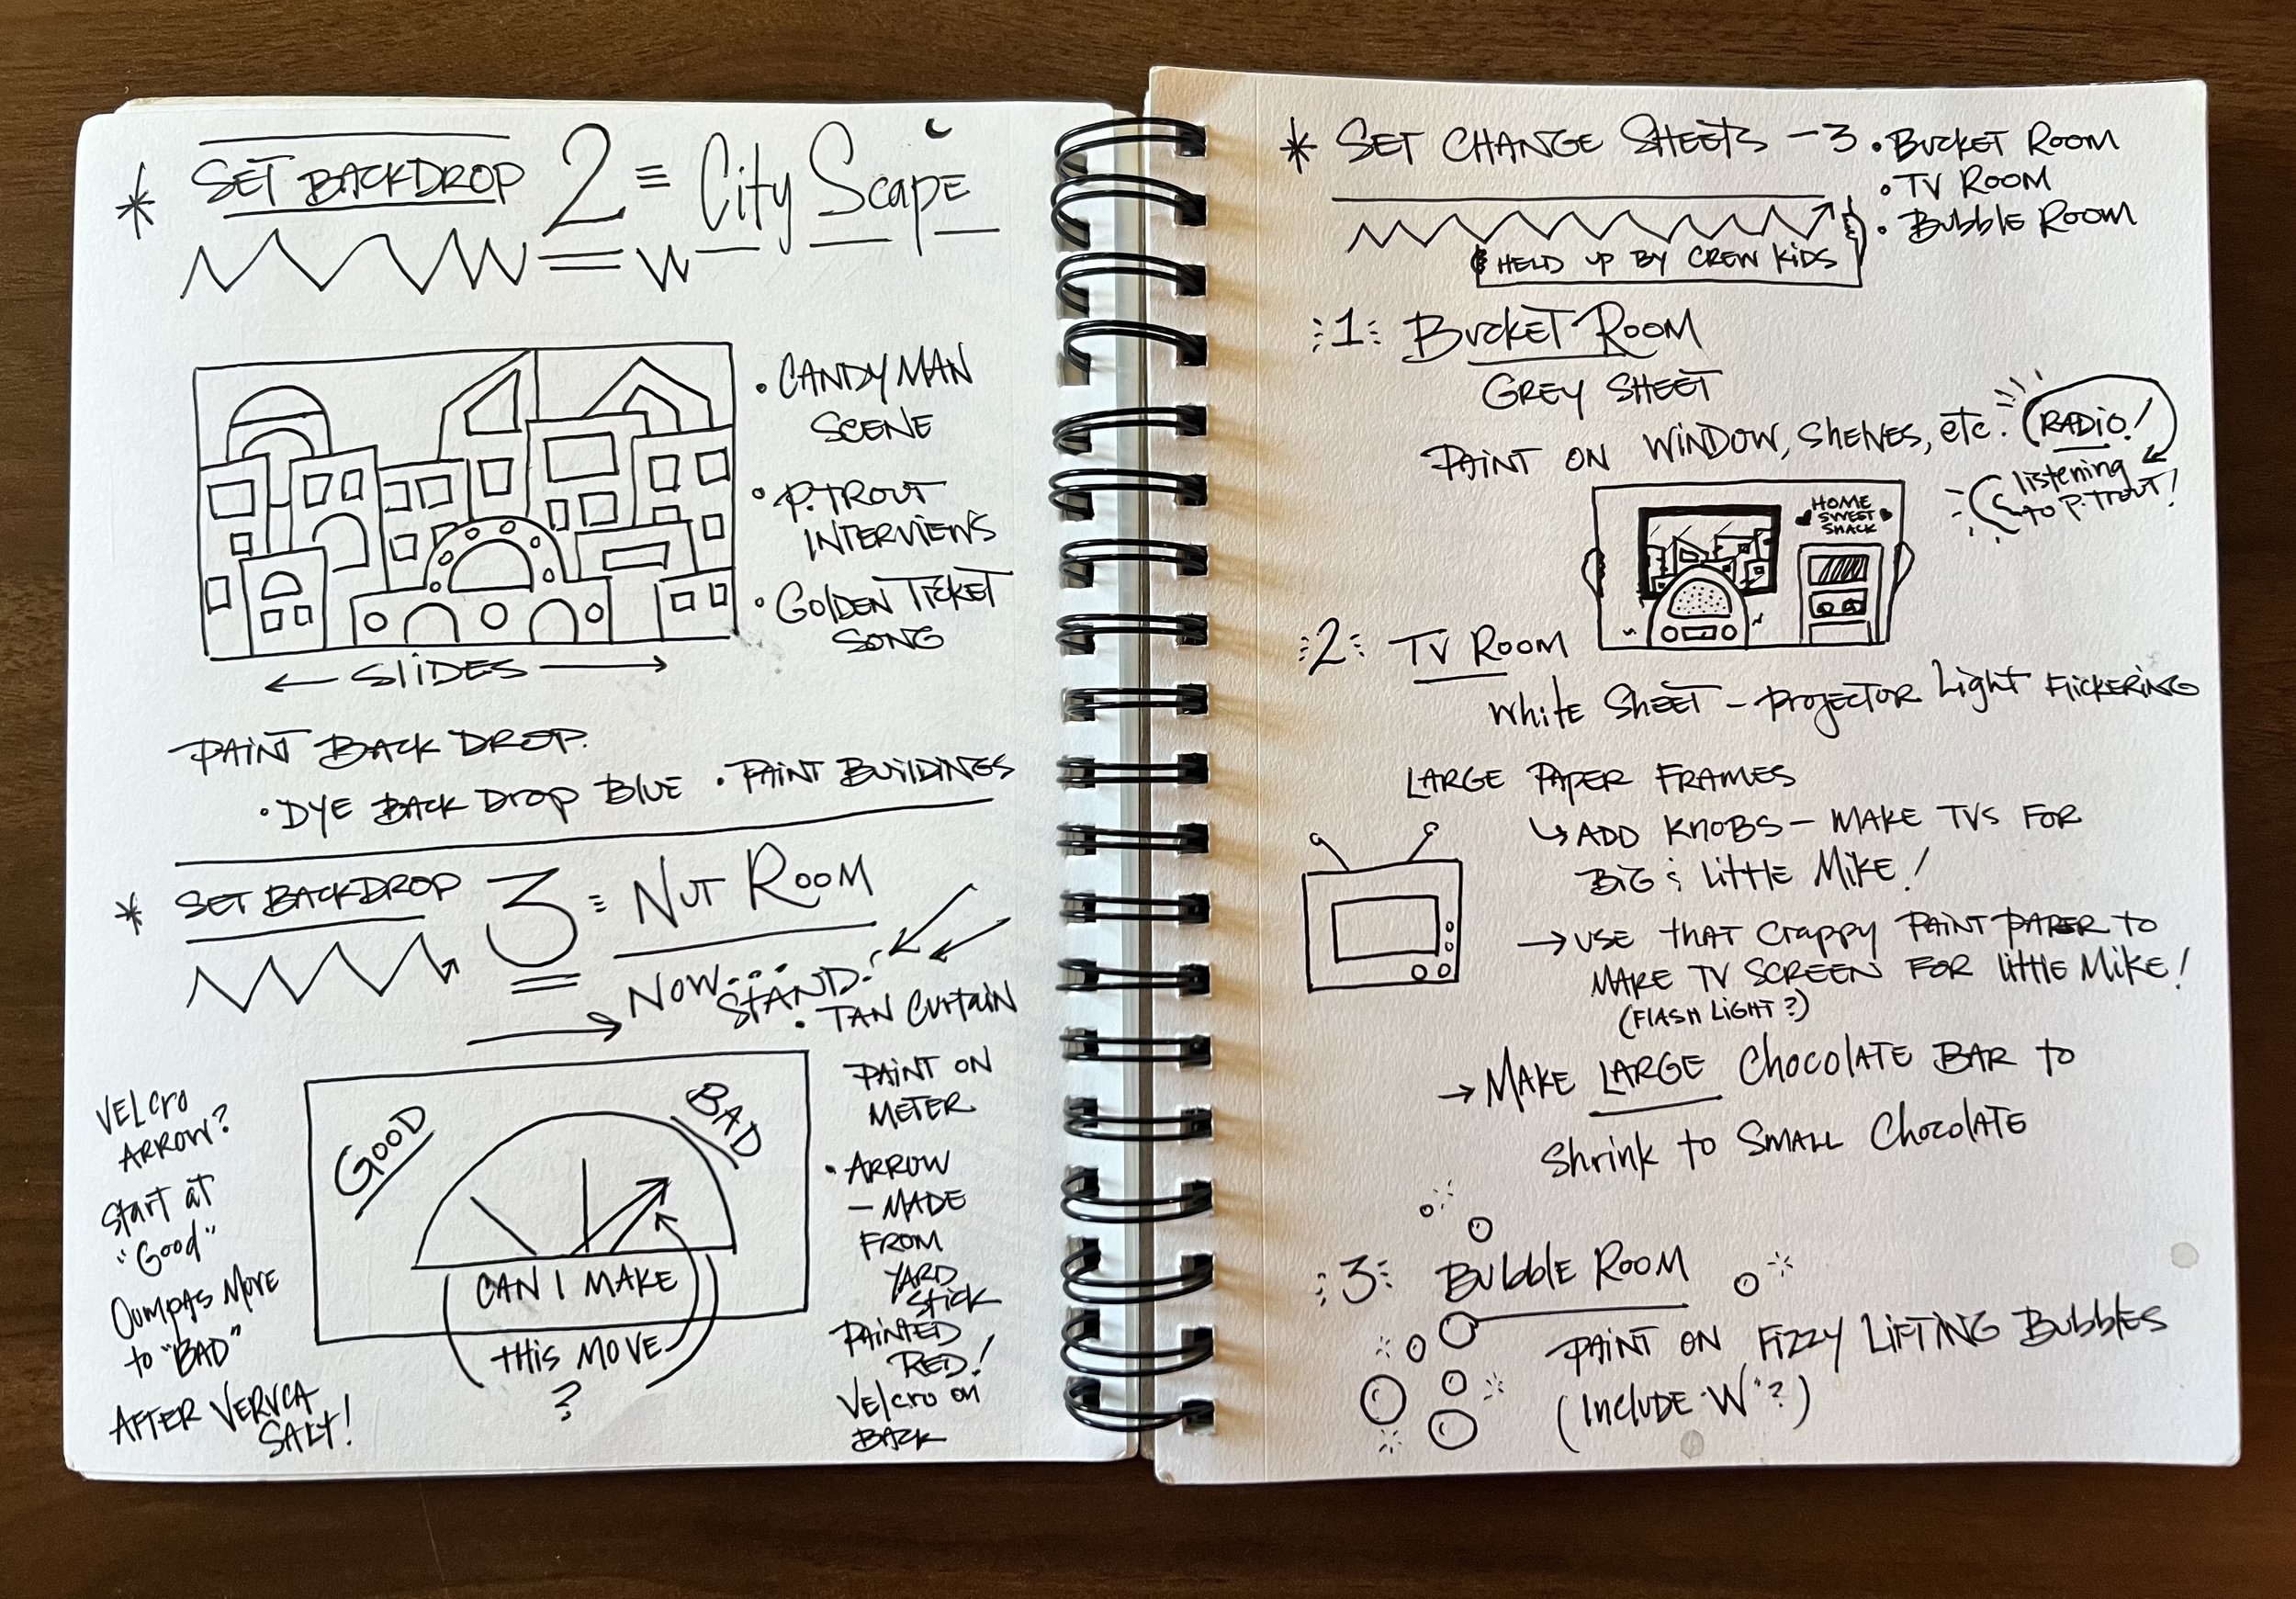 * SET BACKDROP 2 = City Scape
• CANDY MAN
SCENE
• P. TROUT
INTERVIEWS
• GOLDEN TICKET
SONG
← SLIDES →
PAINT BACK DROP.
• DYE BACK DROP BLUE • PAINT BUILDINGS
* SET BACKDROP 3 = NUT ROOM
NOW... STAND.
• TAN CURTAIN
PAINT ON
METER
• ARROW
- MADE
FROM
YARD
STICK
PAINTED
RED!
VELCRO ON
BACK
VELCRO
ARROW?
START AT
"GOOD"
OUMPAS MOVE
TO "BAD"
AFTER VERUCA
SALT!
GOOD
BAD
CAN I MAKE
THIS MOVE
?
* SET CHANGE SHEETS - 3 • BUCKET ROOM
• TV ROOM
• BUBBLE ROOM
HELD UP BY CREW KIDS
1 BUCKET ROOM
GREY SHEET
PAINT ON WINDOW, SHELVES, etc. (RADIO!
listening
to P. TROUT!
HOME
SWEET
SHACK
2 TV ROOM
White SHEET - PROJECTOR Light FLICKERING
LARGE PAPER FRAMES
↳ ADD KNOBS - MAKE TVS FOR
BIG & LITTLE MIKE!
→ USE THAT CRAPPY PAINT PAPER TO
MAKE TV SCREEN FOR LITTLE MIKE!
(FLASH LIGHT?)
→ MAKE LARGE CHOCOLATE BAR TO
Shrink to SMALL CHOCOLATE
3 BUBBLE ROOM
PAINT ON FIZZY LIFTING BUBBLES
(INCLUDE "W"?)